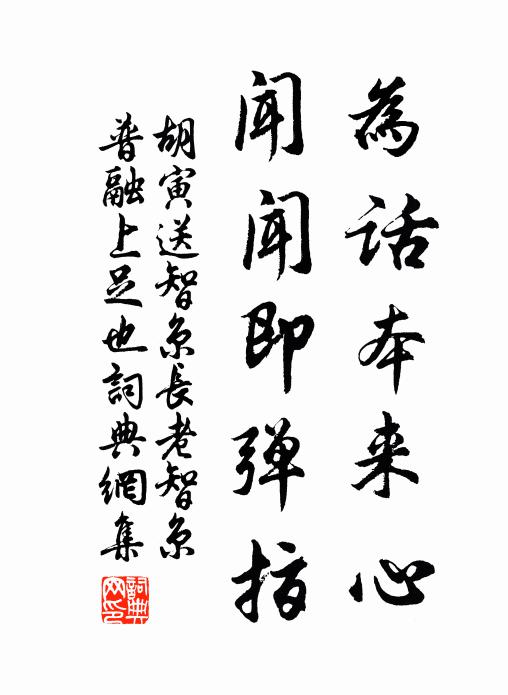 為話本来心
聞聞即弹指
胡寅送智京長老智京
普融上足也詞典網集
詞典网印